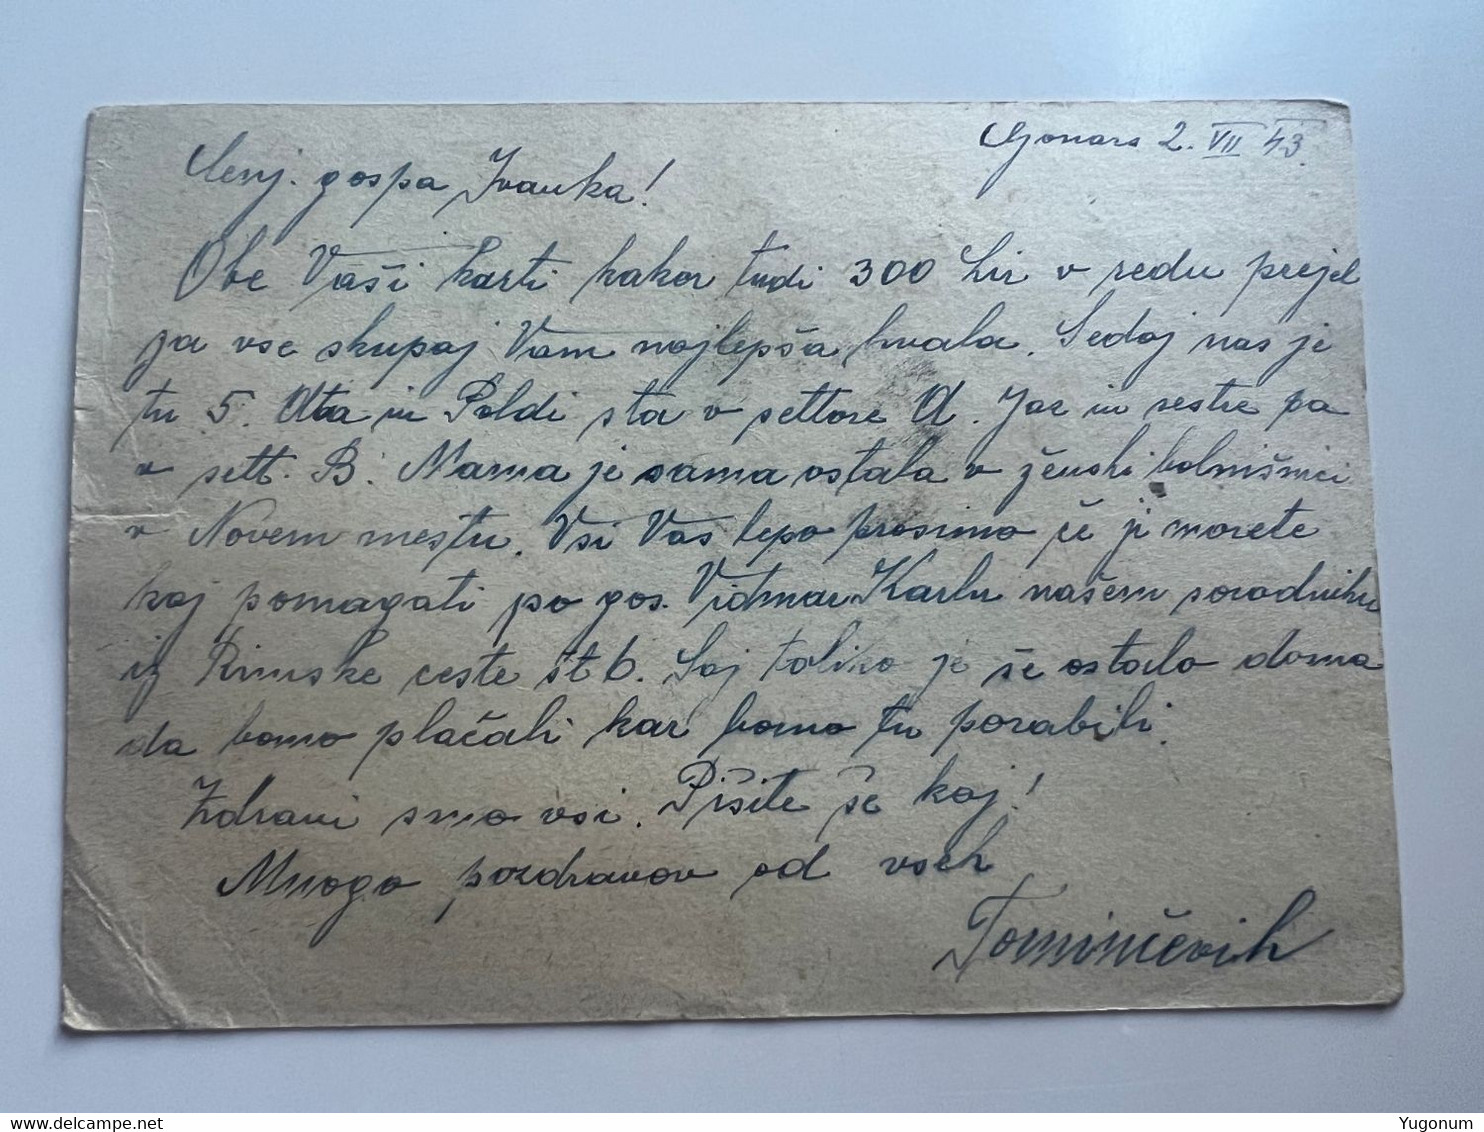 Gonars 2. VII 43.
Cenj. gospa Ivanka!
Obe Vaši karti kakor tudi 300 Lir v redu prejel
za vse skupaj Vam najlepša hvala. Sedaj nas je
tu 5. Ata in Poldi sta v settore A. Jaz in sestre pa
v sett. B. Mama je sama ostala v ženski bolnišnici
v Novem mestu. Vsi Vas lepo prosimo če ji morete
kaj pomagati po gos. Vidmar Karlu našem sorodniku
iz Rimske ceste št 6. Saj toliko je še ostalo doma
da bomo plačali kar bomo tu porabili.
Zdravi smo vsi. Pišite še kaj!
Mnogo pozdravov od vseh
Tominčevih
delcampe.net
Yugonum